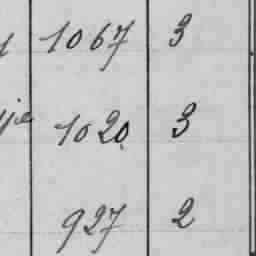 1067 3
1020 3
927 2